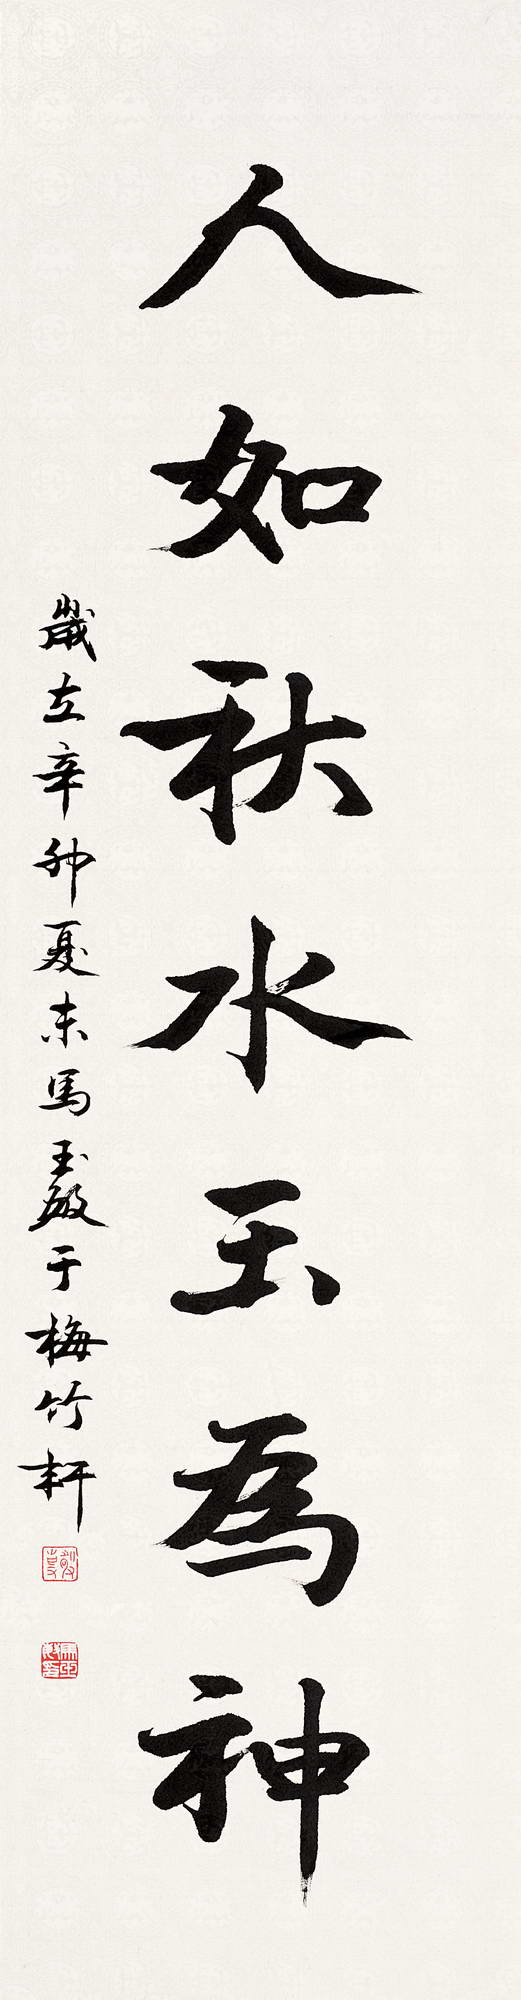 人如秋水玉為神
歲在辛卯夏末馬玉嚴于梅竹軒